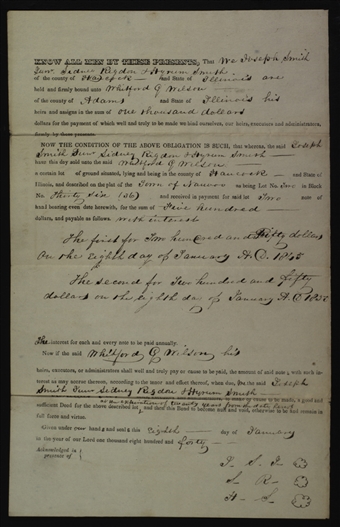 KNOW ALL MEN BY THESE PRESENTS, That We Joseph Smith
Junr Sidney Rigdon & Hyrum Smith
of the county of Hancock and State of Illinois are
held and firmly bound unto Whitford G Wilson
of the county of Adams and State of Illinois his
heirs and assigns in the sum of one thousand dollars
for the payment of which well and truly to be made we bind ourselves, our heirs, executors and administrators,
firmly, by these presents.
NOW THE CONDITION OF THE ABOVE OBLIGATION IS SUCH, that whereas, the said Joseph
Smith Junr Sidney Rigdon & Hyrum Smith
have this day sold unto the said Whitford G Wilson
a certain lot of ground situated, lying and being in the county of Hancock and State of
Illinois, and described on the plat of the Town of Nauvoo as being Lot No. Two in Block
No. Thirty Six (36) and received in payment for said lot Two notes of
hand bearing even date herewith, for the sum of Five hundred
dollars, and payable as follows, with interest
The first for Two hundred and Fifty dollars
on the eighth day of January A.D. 1845
The second for Two hundred and fifty
dollars on the eighth day of January A.D. 1850
The interest for each and every one to be paid annually.
Now if the said Whitford G Wilson his
heirs, executors, or administrators shall well and truly pay or cause to be paid, the amount of said notes, with such interest as may accrue thereon, according to the tenor and effect thereof, when due, the said Joseph
Smith Junr Sidney Rigdon & Hyrum Smith
make or cause to be made, a good and
at the expiration of twenty years from the date hereof
sufficient Deed for the above described lot and then this Bond to become null and void, otherwise to be and remain in
full force and virtue.
Given under our hands and seals this eighth day of January
in the year of our Lord one thousand eight hundred and forty
Acknowledged in
presence of
J. S. J.
S. R.
H. S.